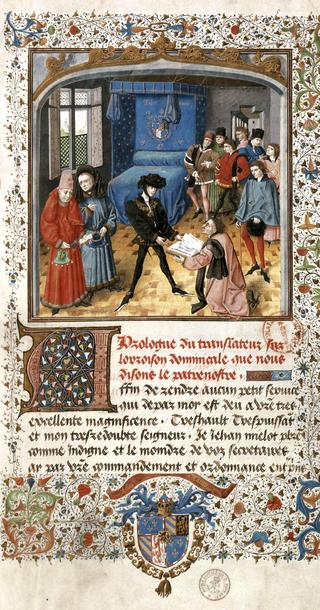 Prologue du translateur sus
lorroison dominicale que nous
disons le patrenostre
Affin de rendre aucun petit service
qui depar moy est deu a vře tres
excellente magnificence. Treshault Trespuissãt
et mon tresredoubte seigneur. Je Jehan mielot p̃bře
comme indigne et le moindre de voz secretaires
ay par vře commandement et ordonnance